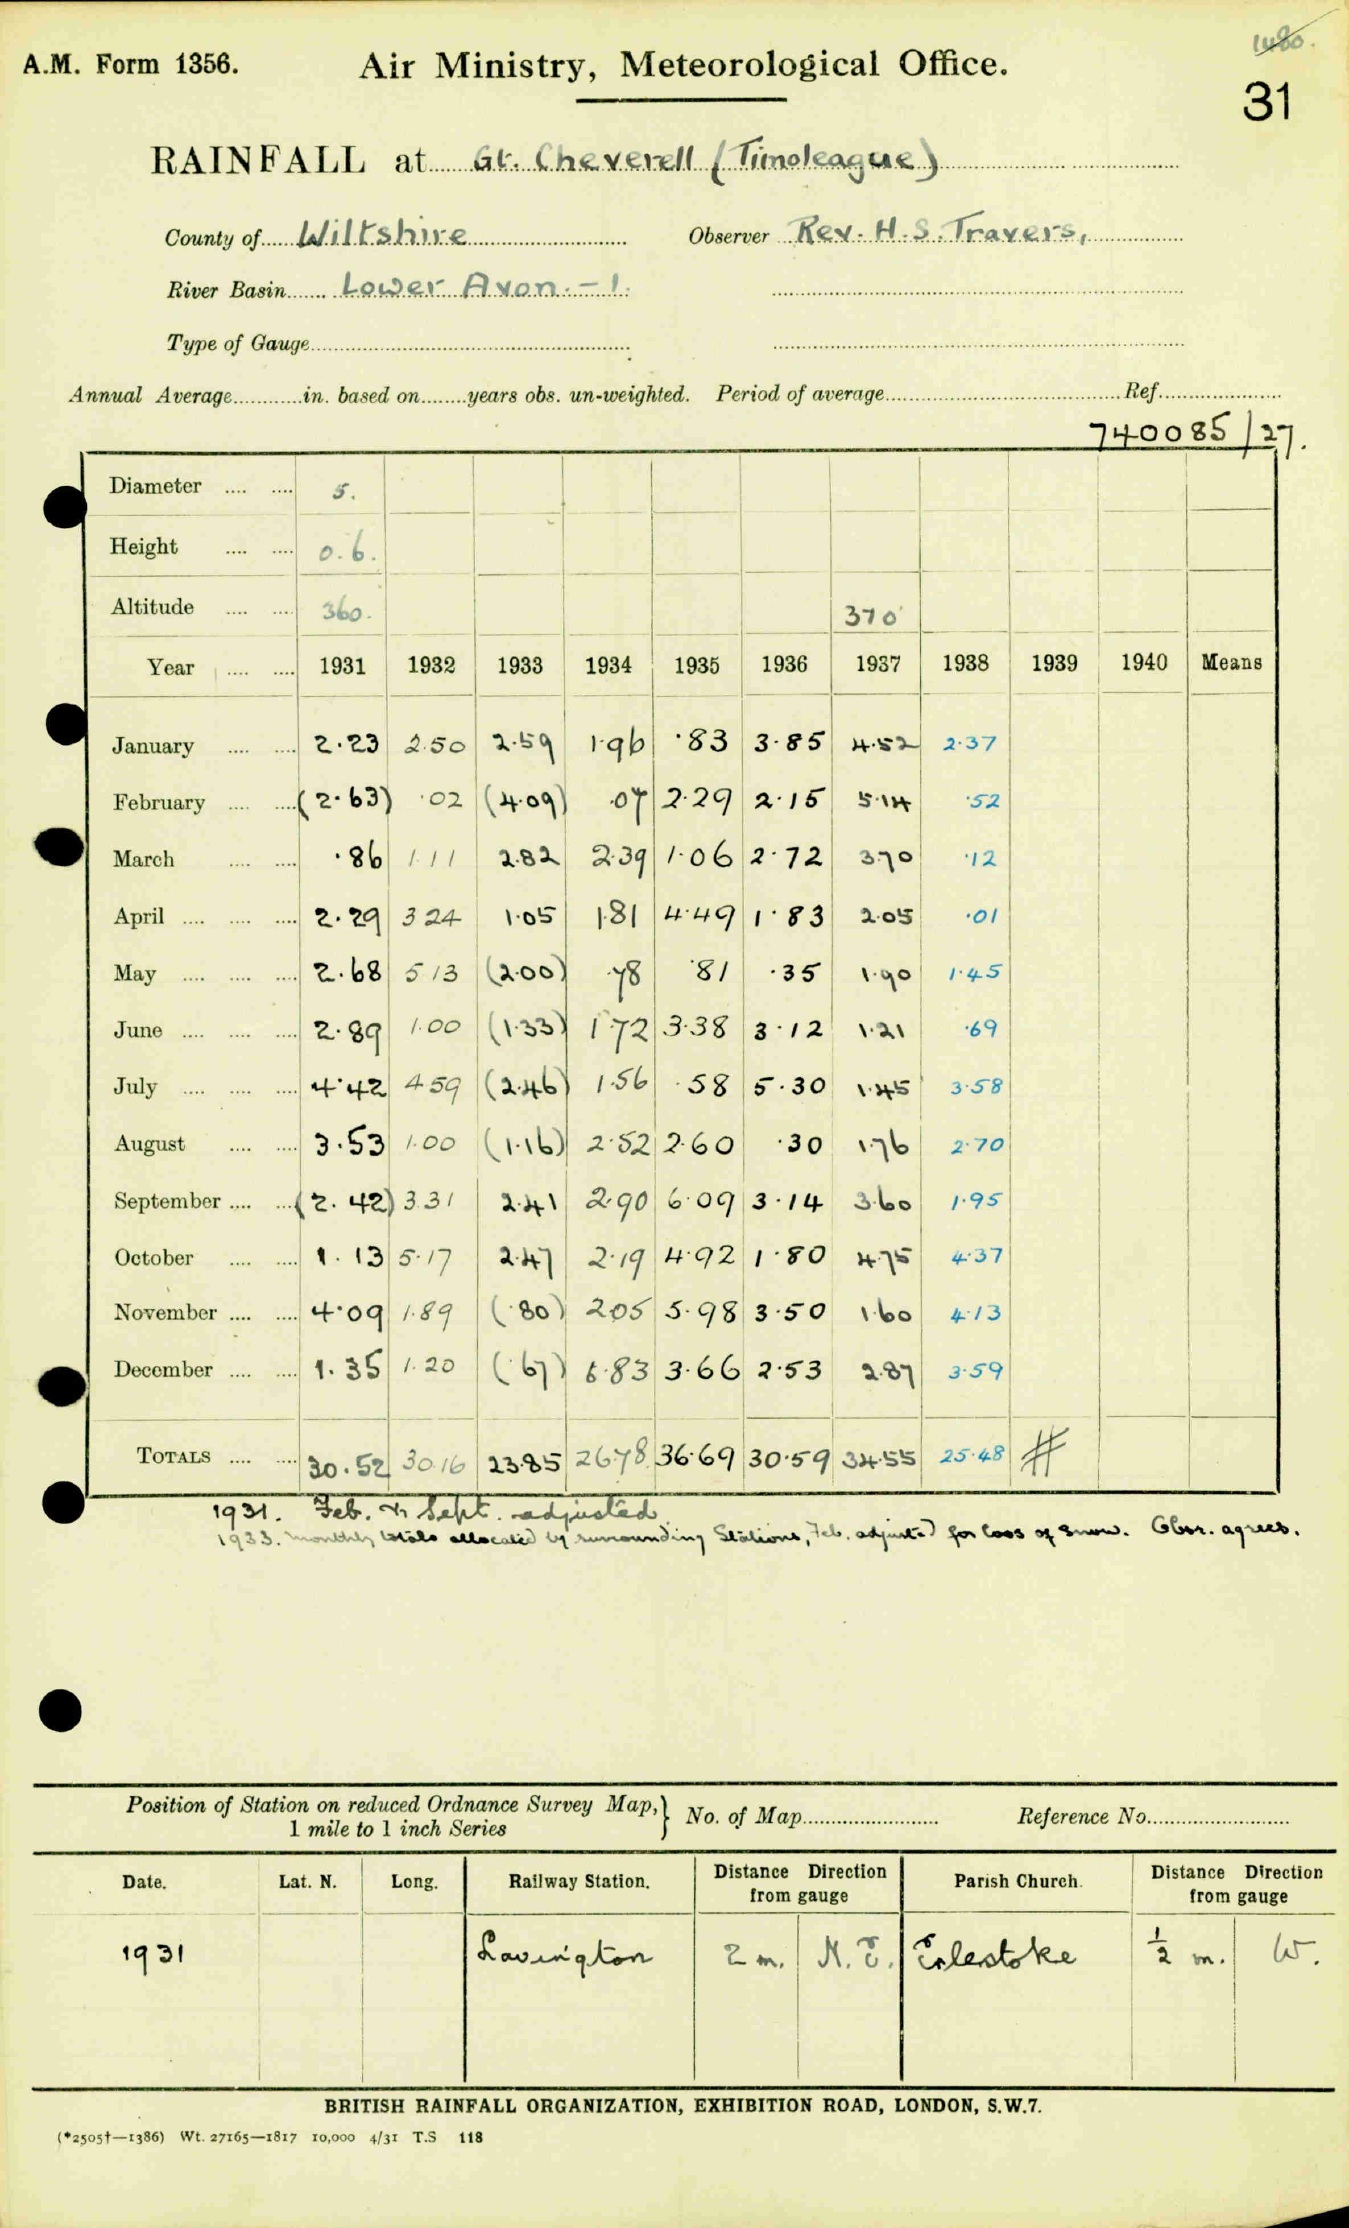 1480.
A.M. Form 1356. Air Ministry, Meteorological Office.
31
RAINFALL at Gt. Cheverell (Timoleague)
County of Wiltshire Observer Rev. H. S. Travers,
River Basin Lower Avon. - 1.
Type of Gauge
Annual Average in. based on years obs. un-weighted. Period of average Ref.
740085/27.
Diameter 5.
Height 0.6.
Altitude 360. 370
Year 1931 1932 1933 1934 1935 1936 1937 1938 1939 1940 Means
January 2.23 2.50 2.59 1.96 .83 3.85 4.52 2.37
February (2.63) .02 (4.09) .07 2.29 2.15 5.14 .52
March .86 1.11 2.82 2.39 1.06 2.72 3.70 .12
April 2.29 3 24 1.05 1.81 4.49 1.83 2.05 .01
May 2.68 5 13 (2.00) .78 .81 .35 1.90 1.45
June 2.89 1.00 (1.33) 1.72 3.38 3.12 1.21 .69
July 4.42 4 59 (2.46) 1.56 .58 5.30 1.45 3.58
August 3.53 1.00 (1.16) 2.52 2.60 .30 1.76 2.70
September (2.42) 3.31 2.41 2.90 6.09 3.14 3.60 1.95
October 1.13 5.17 2.47 2.19 4.92 1.80 4.75 4.37
November 4.09 1.89 (.80) 2.05 5.98 3.50 1.60 4.13
December 1.35 1.20 (.67) 6.83 3.66 2.53 2.87 3.59
TOTALS 30.52 30.16 23.85 26.78 36.69 30.59 34.55 25.48 #
1931. Feb. & Sept. adjusted
1933. monthly totals allocated by surrounding Stations, Feb. adjusted for loss of snow. Obsr. agrees.
Position of Station on reduced Ordnance Survey Map,} No. of Map Reference No.
1 mile to 1 inch Series
Date. Lat. N. Long. Railway Station. Distance Direction Parish Church. Distance Direction
from gauge from gauge
1931 Lavington 2 m. N.E. Erlestoke ½ m. W.
BRITISH RAINFALL ORGANIZATION, EXHIBITION ROAD, LONDON, S.W.7.
(*2505†—1386) Wt. 27165—1817 10,000 4/31 T.S 118